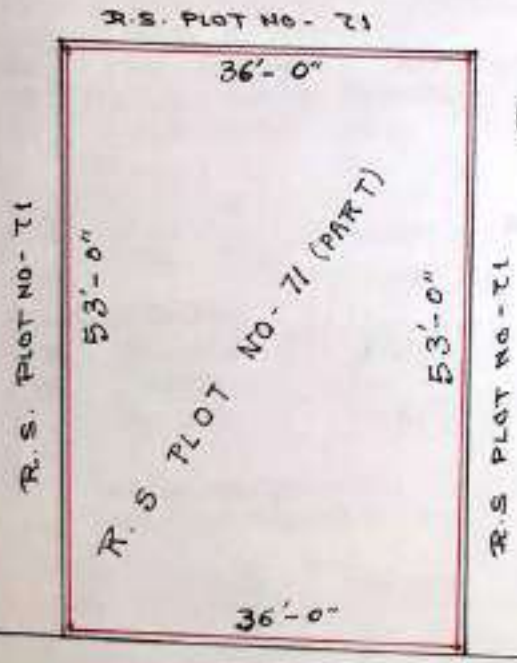 R.S. PLOT NO - 71
36'- 0"
R.S. PLOT NO - 71
53'- 0"
R.S PLOT NO - 71 (PART)
53'- 0"
R.S PLOT NO - 71
36'- 0"